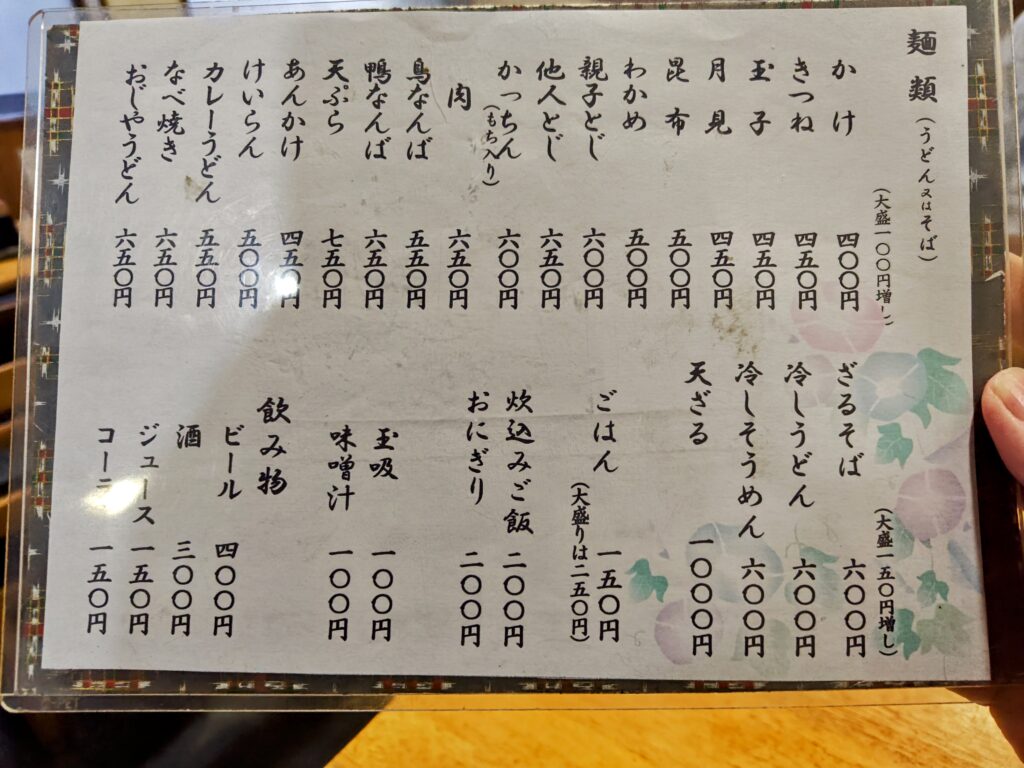 麺類（うどん又はそば）
（大盛一〇〇円増し）
かけ 四〇〇円
きつね 四五〇円
玉子 四五〇円
月見 四五〇円
昆布 五〇〇円
わかめ 五〇〇円
親子とじ 六〇〇円
他人とじ 六五〇円
かっちん（もち入り） 六〇〇円
肉 六五〇円
鳥なんば 五五〇円
鴨なんば 六五〇円
天ぷら 七五〇円
あんかけ 四五〇円
けいらん 五〇〇円
カレーうどん 五五〇円
なべ焼き 六五〇円
おじやうどん 六五〇円
（大盛一五〇円増し）
ざるそば 六〇〇円
冷しうどん 六〇〇円
冷しそうめん 六〇〇円
天ざる 一〇〇〇円
ごはん 一五〇円
（大盛りは二五〇円）
炊込みご飯 二〇〇円
おにぎり 二〇〇円
玉吸 一〇〇円
味噌汁 一〇〇円
飲み物
ビール 四〇〇円
酒 三〇〇円
ジュース 一五〇円
コーラ 一五〇円